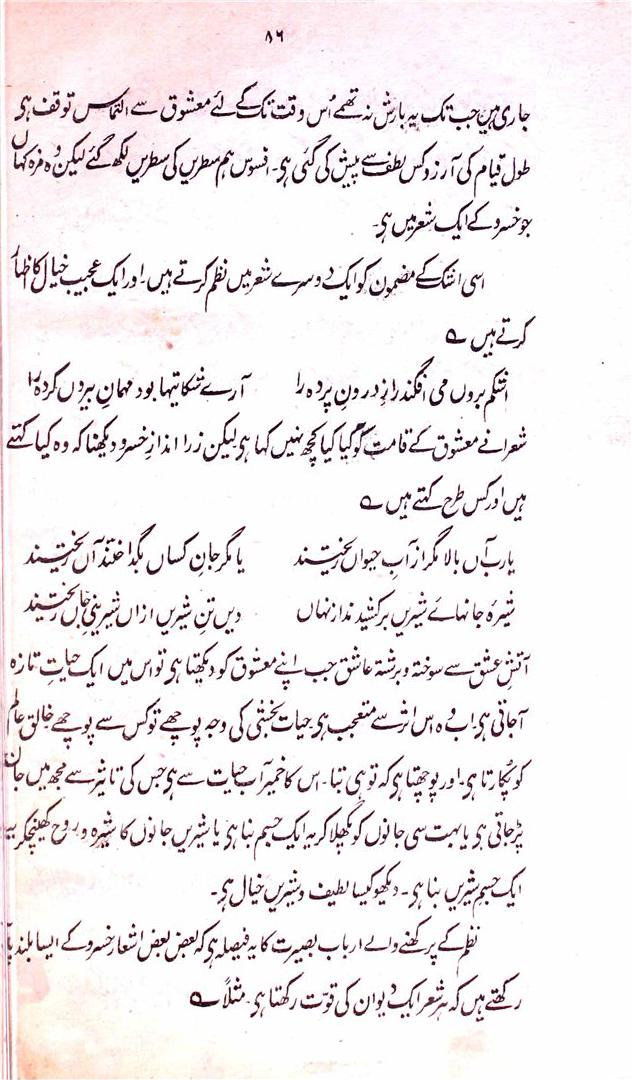 ۸۶
جاری ہیں جب تک یہ بارش نہ تھمے اُس وقت تک کے لئے معشوق سے التماس توقف ہی
طول قیام کی آرزو کس لطف سے پیش کی گئی ہی۔ افسوس ہم سطریں کی سطریں لکھ گئے لیکن وہ مزہ کہاں
جو خسرو کے ایک شعر میں ہی۔
اسی اشک کے مضمون کو ایک دوسرے شعر میں نظم کرتے ہیں۔ اور ایک عجیب خیال کا اظہار
کرتے ہیں ؎
اشکم بروں می افگند راز درونِ پردہ را آرے شکایتہا بود مہمانِ بیروں کردہ را
شعرا نے معشوق کے قامت کو کیا کیا کچھ نہیں کہا ہی لیکن زرا اندازِ خسرو دیکھنا کہ وہ کیا کہتے
ہیں اور کس طرح کہتے ہیں ؎
یارب آں بالا مگر از آبِ حیواں ریختند یا مگر جانِ کساں بگداختند آں ریختند
شیرہ جانہائے شیریں برکشیدند از نہاں دیں تنِ شیریں ازاں شیرینیِ جاں ریختند
آتشِ عشق سے سوختہ و برشتہ عاشق جب اپنے معشوق کو دیکھتا ہی تو اس میں ایک حیاتِ تازہ
آجاتی ہی۔ اب وہ اس اثر سے متعجب ہی۔ حیات بخشی کی وجہ پوچھے تو کس سے پوچھے خالق عالم
کو پُکارتا ہی۔ اور پوچھتا ہی کہ تو ہی بتا۔ اس کا خمیر آب حیات سے ہی جس کی تاثیر سے مجھ میں جان
پڑ جاتی ہی یا بہت سی جانوں کو پگھلا کر یہ ایک جسم بنا ہی یا شیریں جانوں کا شیرہ و روح کھینچکر یہ
ایک جسمِ شیریں بنا ہی۔ دیکھو کیسا لطیف و شیریں خیال ہی۔
نظم کے پرکھنے والے ارباب بصیرت کا یہ فیصلہ ہی کہ بعض بعض اشعار خسرو کے ایسا بلند پایہ
رکھتے ہیں کہ ہر شعر ایک دیوان کی قوّت رکھتا ہی۔ مثلاً ؎